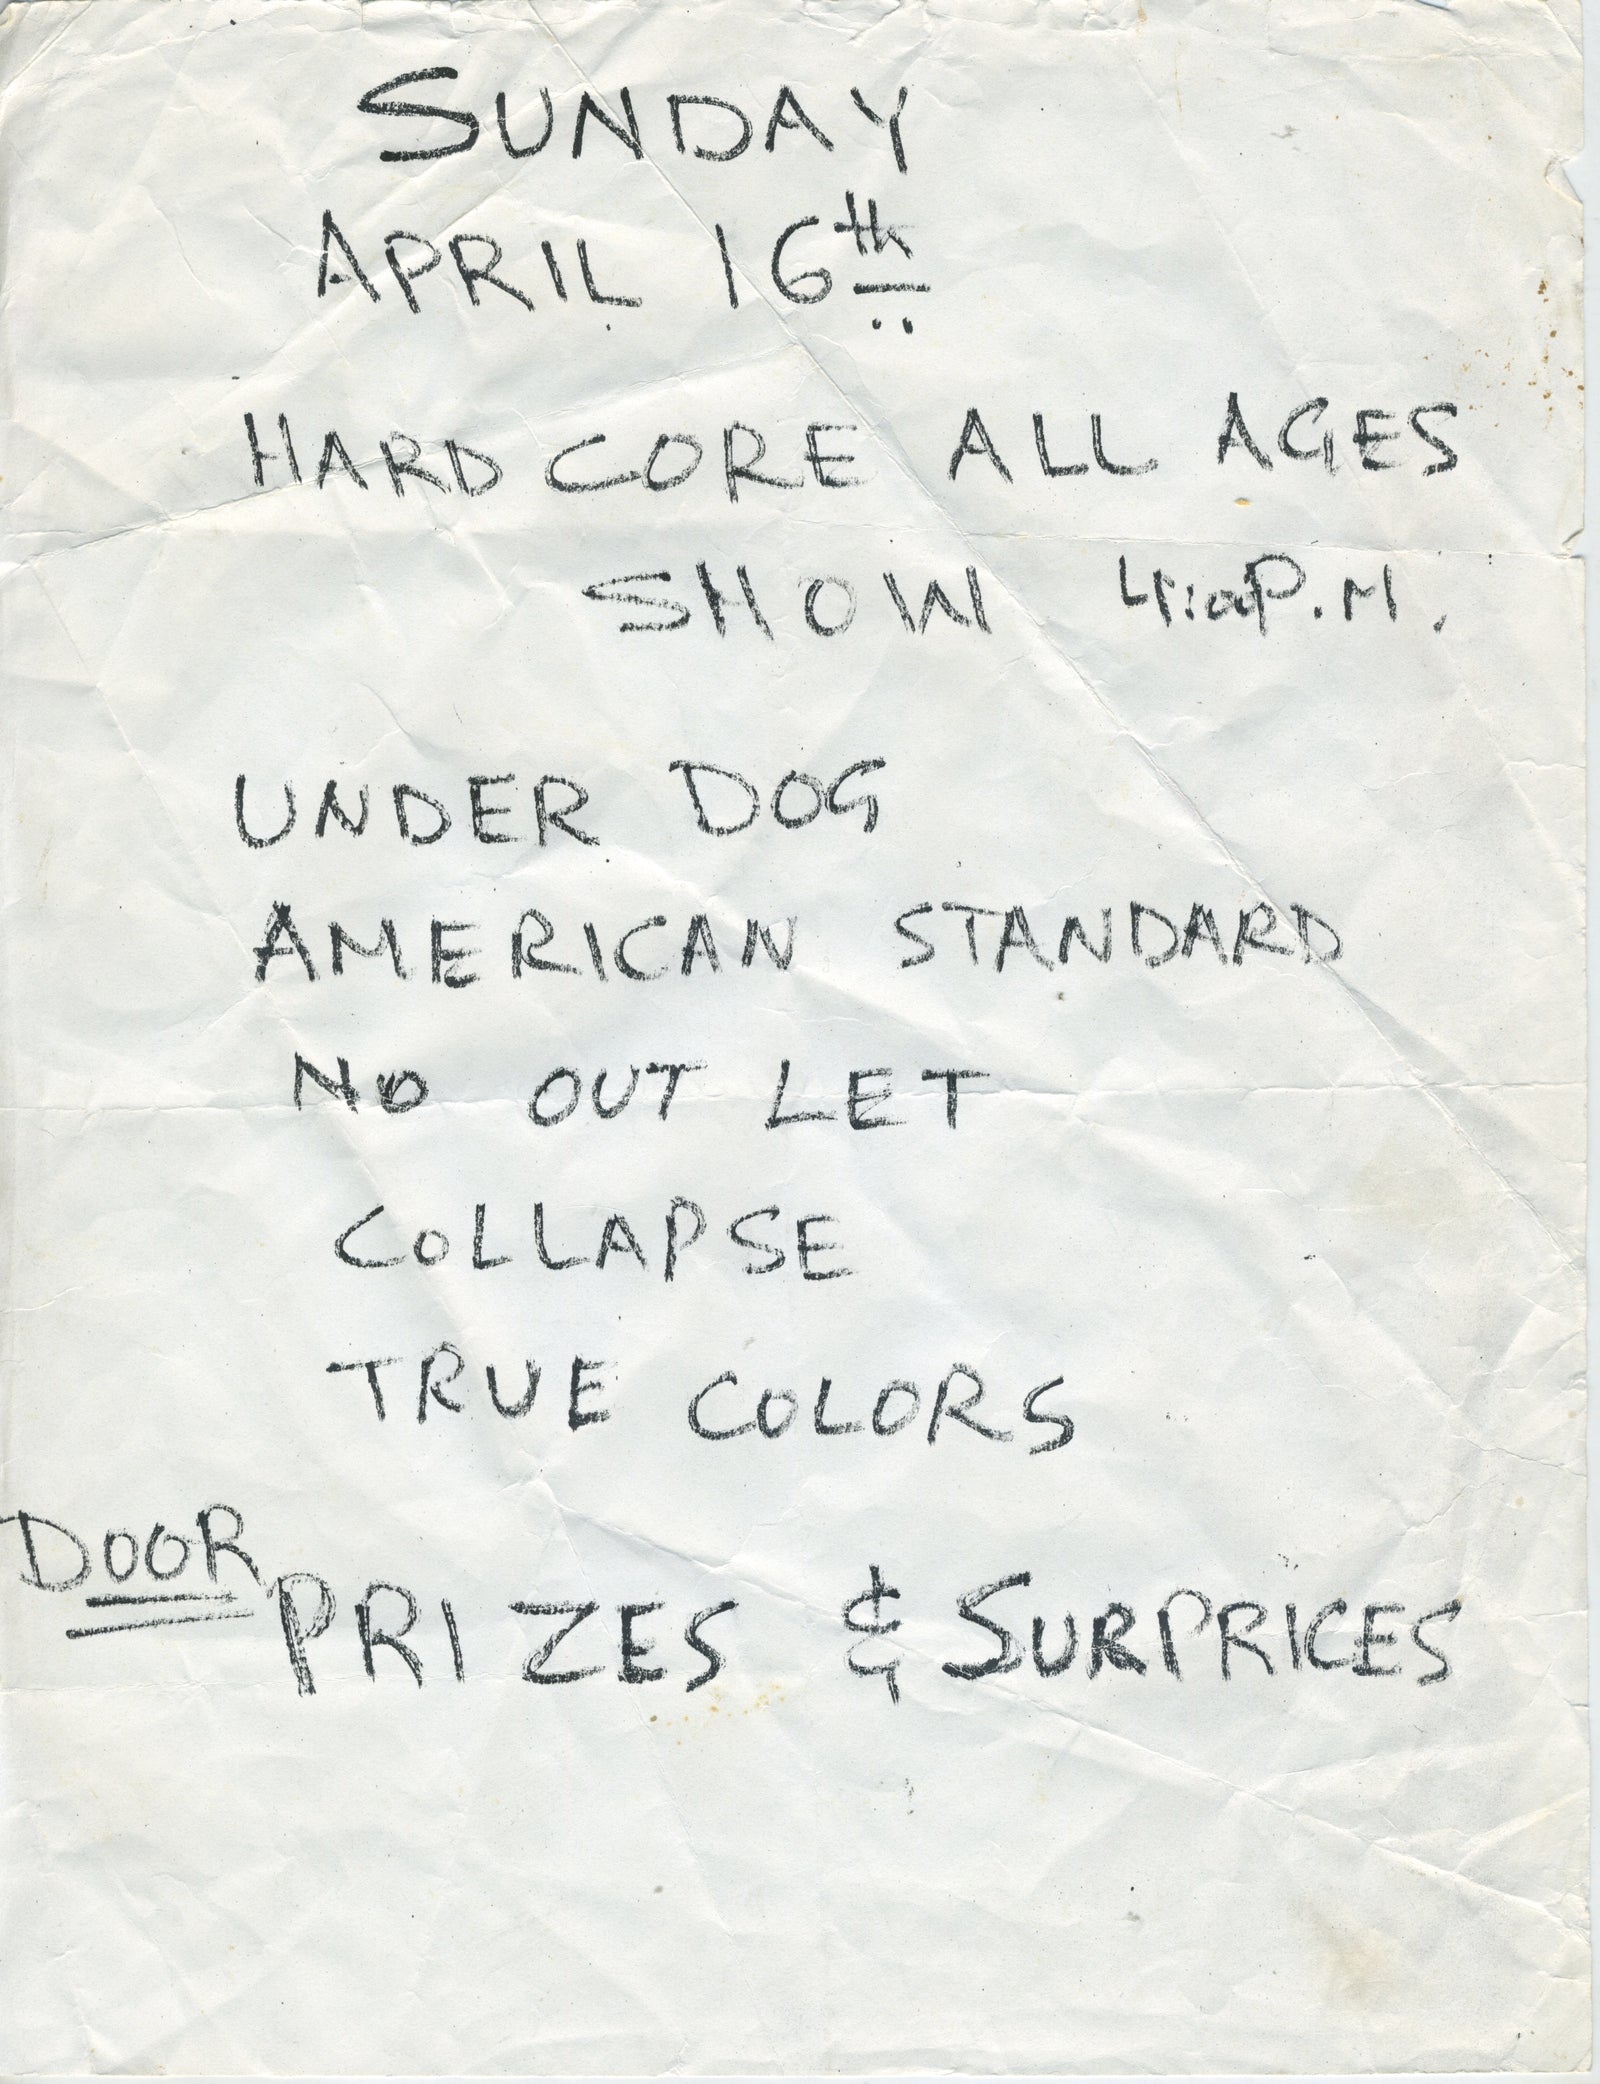 SUNDAY
APRIL 16th
HARD CORE ALL AGES
SHOW 4:00P.M.
UNDER DOG
AMERICAN STANDARD
NO OUT LET
COLLAPSE
TRUE COLORS
DOOR
PRIZES & SURPRICES